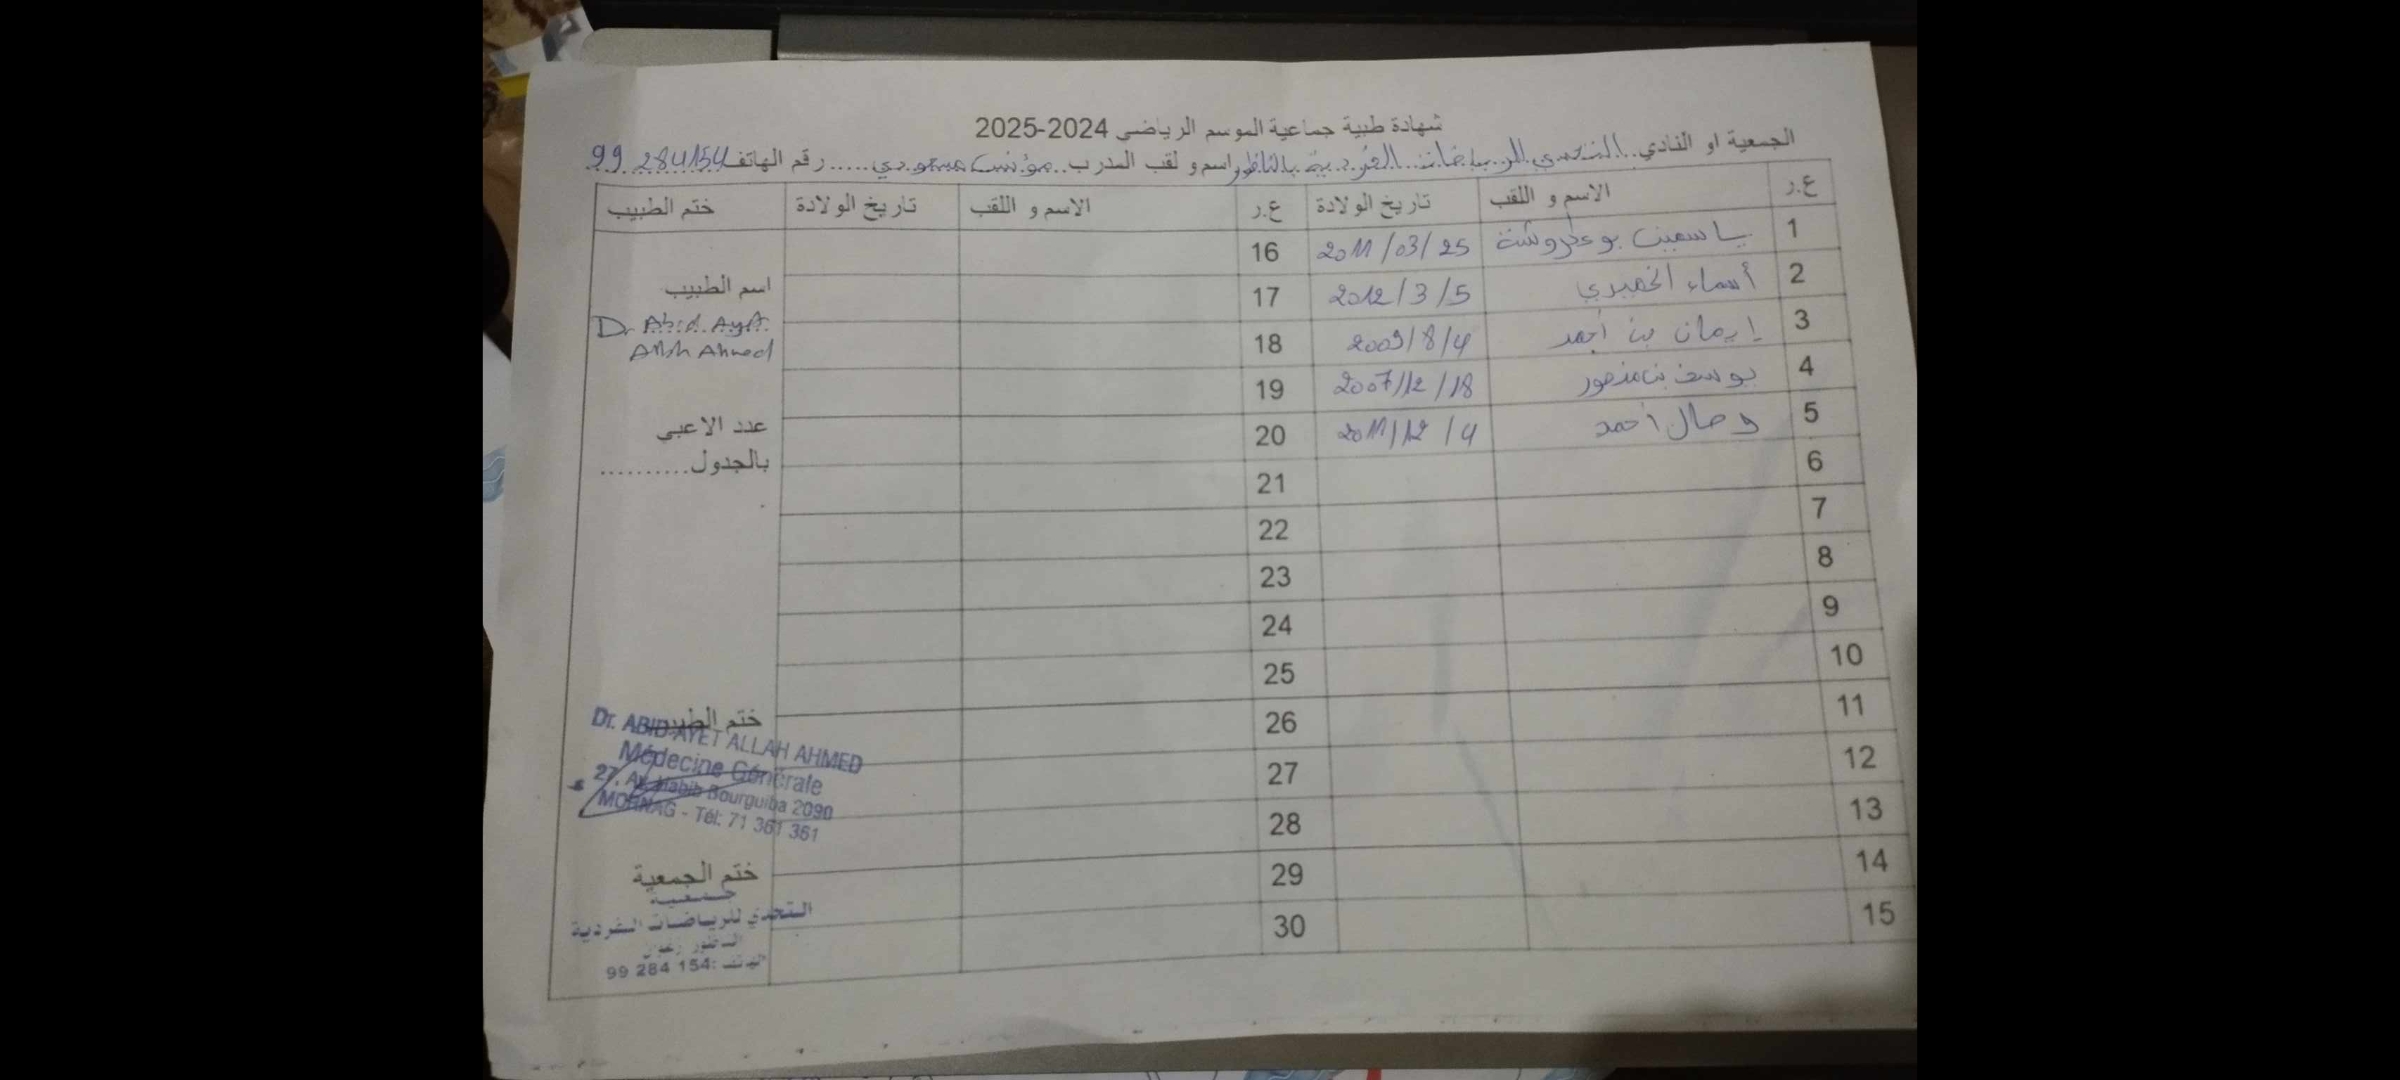 شهادة طبية جماعية الموسم الرياضي 2024-2025
الجمعية او النادي..التحدي للرياضات..الفردية بالناظور اسم و لقب المدرب..مؤنس مسعودي.....رقم الهاتف 99 284154
ع.ر الاسم و اللقب تاريخ الولادة ع.ر الاسم و اللقب تاريخ الولادة ختم الطبيب
1 ياسمين بوعكروشة 2011/03/25 16
2 أسماء الخميري 2012/3/5 17
3 إيمان بن أحمد 2009/8/4 18
4 يوسف بن منصور 2007/12/18 19
5 وصال أحمد 2011/12/4 20
6 21
7 22
8 23
9 24
10 25
11 26
12 27
13 28
14 29
15 30
اسم الطبيب
Dr Abid Ayet
Allah Ahmed
عدد الاعبي
بالجدول..........
ختم الطبيب
Dr. ABID AYET ALLAH AHMED
Médecine Générale
27, Av. Habib Bourguiba 2090
MORNAG - Tél: 71 361 361
ختم الجمعية
جمعية
التحدي للرياضات الفردية
الناظور زغوان
الهاتف: 99 284 154